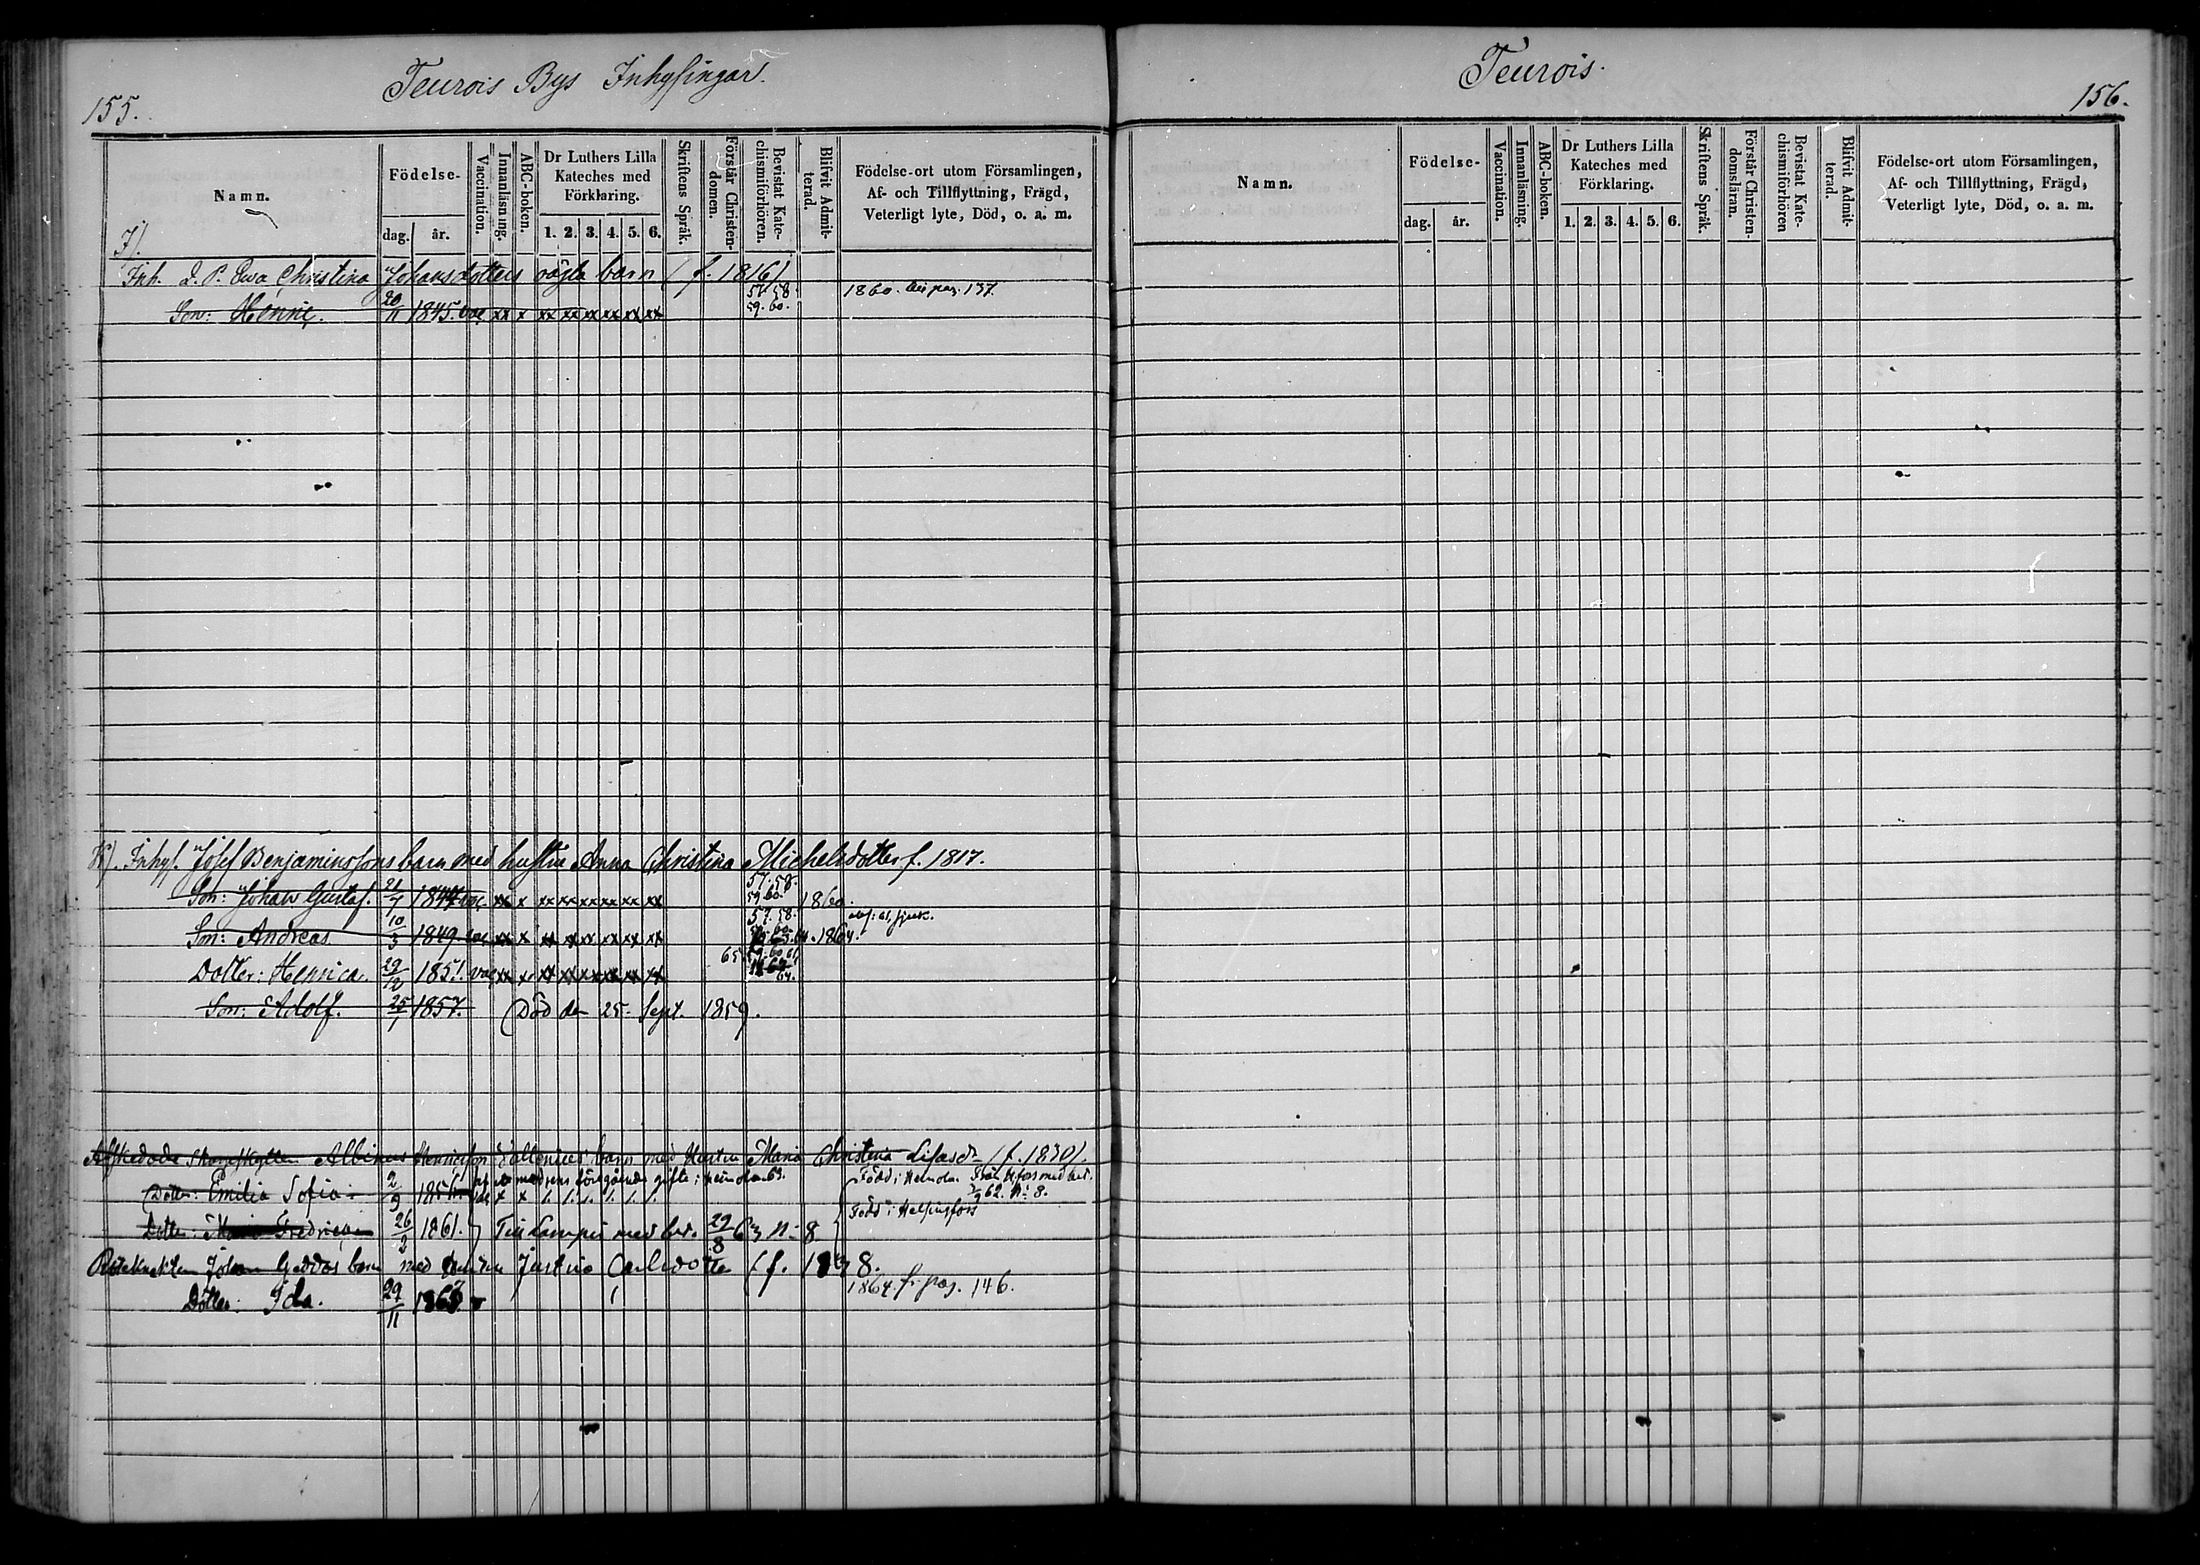 155.
Teurois Bys Inhysingar.
Namn.
Födelse-
dag.
år.
Vaccination.
Innanläsning.
ABC-boken.
Dr Luthers Lilla
Kateches med
Förklaring.
1. 2. 3. 4. 5. 6.
Skriftens Språk.
Förstår Christen-
domen.
Bevistat Kate-
chismiförhören.
Blifvit Admit-
terad.
Födelse-ort utom Församlingen,
Af- och Tillflyttning, Frägd,
Veterligt lyte, Död, o. a. m.
Inh. Ewa Christina Johansdotters oägta barn (f. 1816).
Son: Henric. 20/11 1845. vac xx x xx xx xx xx xx xx 57. 58. 59. 60. 1860. pag. 137.
Inhys. Josef Benjaminssons barn med hustru Anna Christina Michelsdotter f. 1817.
Son: Johan Gustaf. 21/7 vac xx x xx xx xx xx xx xx 57. 58. 59. 60. 1860.
Son: Andreas 10/3 1849. vac xx x xx xx xx xx xx xx 57. 58. 1864.
Dotter: Henrica. 29/12 1851. vac xx x xx xx xx xx xx xx 65
Son: Adolf. 25/1 1857. (Död den 25. Sept. 1859.
Afskedade Albinus Henricsson barn med Hustru Maria Christina (f. 1830).
Dotter: Emilia Sofia 2/9 1856 föregående gifte; 63. Född i Heinola. 62. N: 8.
Dotter: Fredrica 26/2 1861. Till med bet. 29/8 63 N: 8 Född i Helsingfors
Johan Geddas barn med Justina Carlsdotter (f. 1838.
Dotter: Ida. 29/11 1863. 1864 fr. pag. 146.
Teurois.
156.
Namn.
Födelse-
dag.
år.
Vaccination.
Innanläsning.
ABC-boken.
Dr Luthers Lilla
Kateches med
Förklaring.
1. 2. 3. 4. 5. 6.
Skriftens Språk.
Förstår Christen-
domsläran.
Bevistat Kate-
chismiförhören
Blifvit Admit-
terad.
Födelse-ort utom Församlingen,
Af- och Tillflyttning, Frägd,
Veterligt lyte, Död, o. a. m.